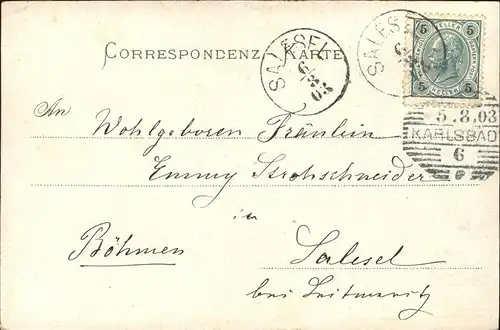 CORRESPONDENZ-KARTE
SALESEL
6/8
03
SALES
6/8
5 HELLER 5
5 HELLER 5
5.8.03
KARLSBAD
6
An
Wohlgeboren Fräulein
Emmy Strohschneider
in
Böhmen
Salesel
bei Leitmeritz